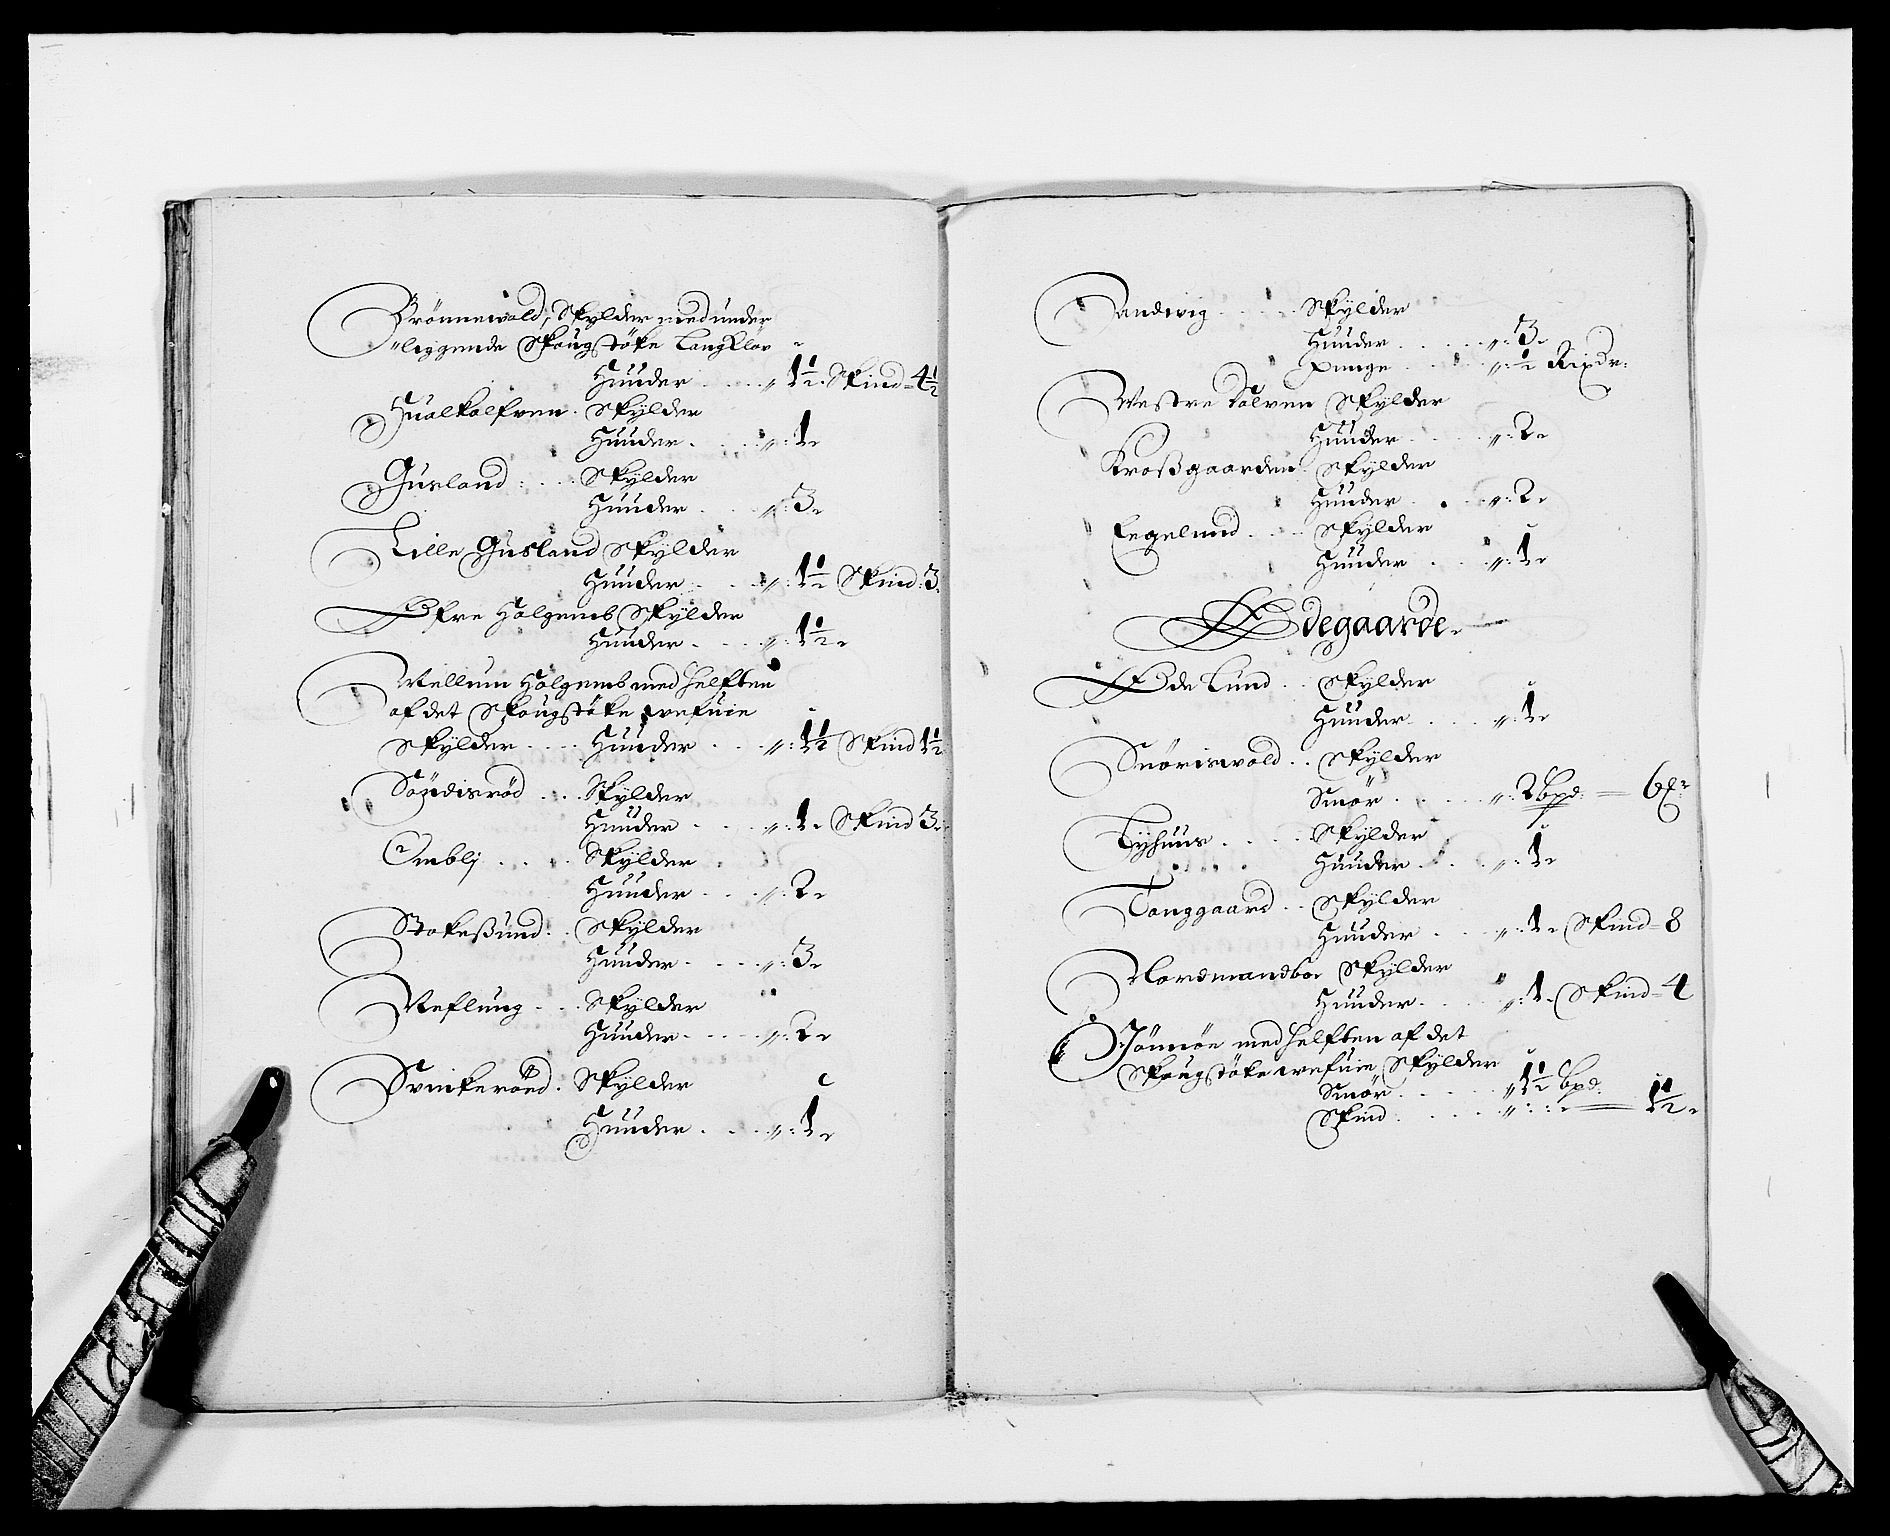 Brönnewald, Skylder med under
liggende Skougstöke Langkløv
Huuder . . . . . „ 1½ Skind = 4½
Hualkalfven . Skylder
Huuder . . . . „: 1
Gusland . . . . Skylder
Huuder . . . . „: 3
Lille Gusland Skylder
Huuder . . . . „: 1½ Skind : 3
Øfre Holgemb Skylder
Huuder . . . . „: 1½
Mellum Holgemb med helften
af det Skougstöke
Skylder . . . . Huuder . . . . „: 1½ Skind 1½
Söndisröd . . . Skylder
Huuder . . . . „: 1 Skind 3
Ombli . . . . . Skylder
Huuder . . . . „: 2
Stokeßund . . Skylder
Huuder . . . . „: 3
Reflung . . . Skylder
Huuder . . . . . „: 2
Svinkeröed . Skylder
Huuder . . . . „: 1
Sandwig . . . . . Skylder
Huuder . . . . . „: 3
Penge . . . . . „: ½ Rixdr:
Westre Kalven Skylder
Huuder . . . . „: 2
Kroßgaarden Skylder
Huuder . . . . „: 2
Eegelund . . . . Skylder
Huuder . . . . „: 1
Ødegaarde.
Øde Lund . . Skylder
Huuder . . . . „: 1
Snöriswold . . Skylder
Smör . . . . . „: 2 bpd: = 6
Tyhuus . . . . . Skylder
Huuder . . . . „: 1
Tanggaard . . Skylder
Huuder . . . . „: 1 Skind = 8
Nordmandboe Skylder
Huuder . . . . „: 1 Skind = 4
Jomöe med helften af det
Skougstöke Skylder
Smör . . . . . „ 1½ bpd:
Skind . . . . . „: : : = 1½